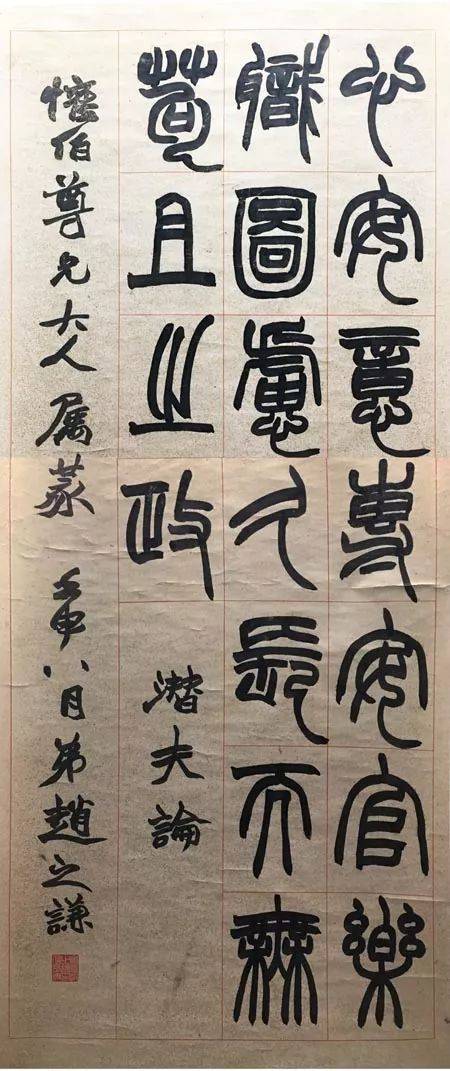 心安意專安官樂
職圖慮久長而無
苟且之政
潛夫論
懷伯尊兄大人屬篆 壬申八月弟趙之謙